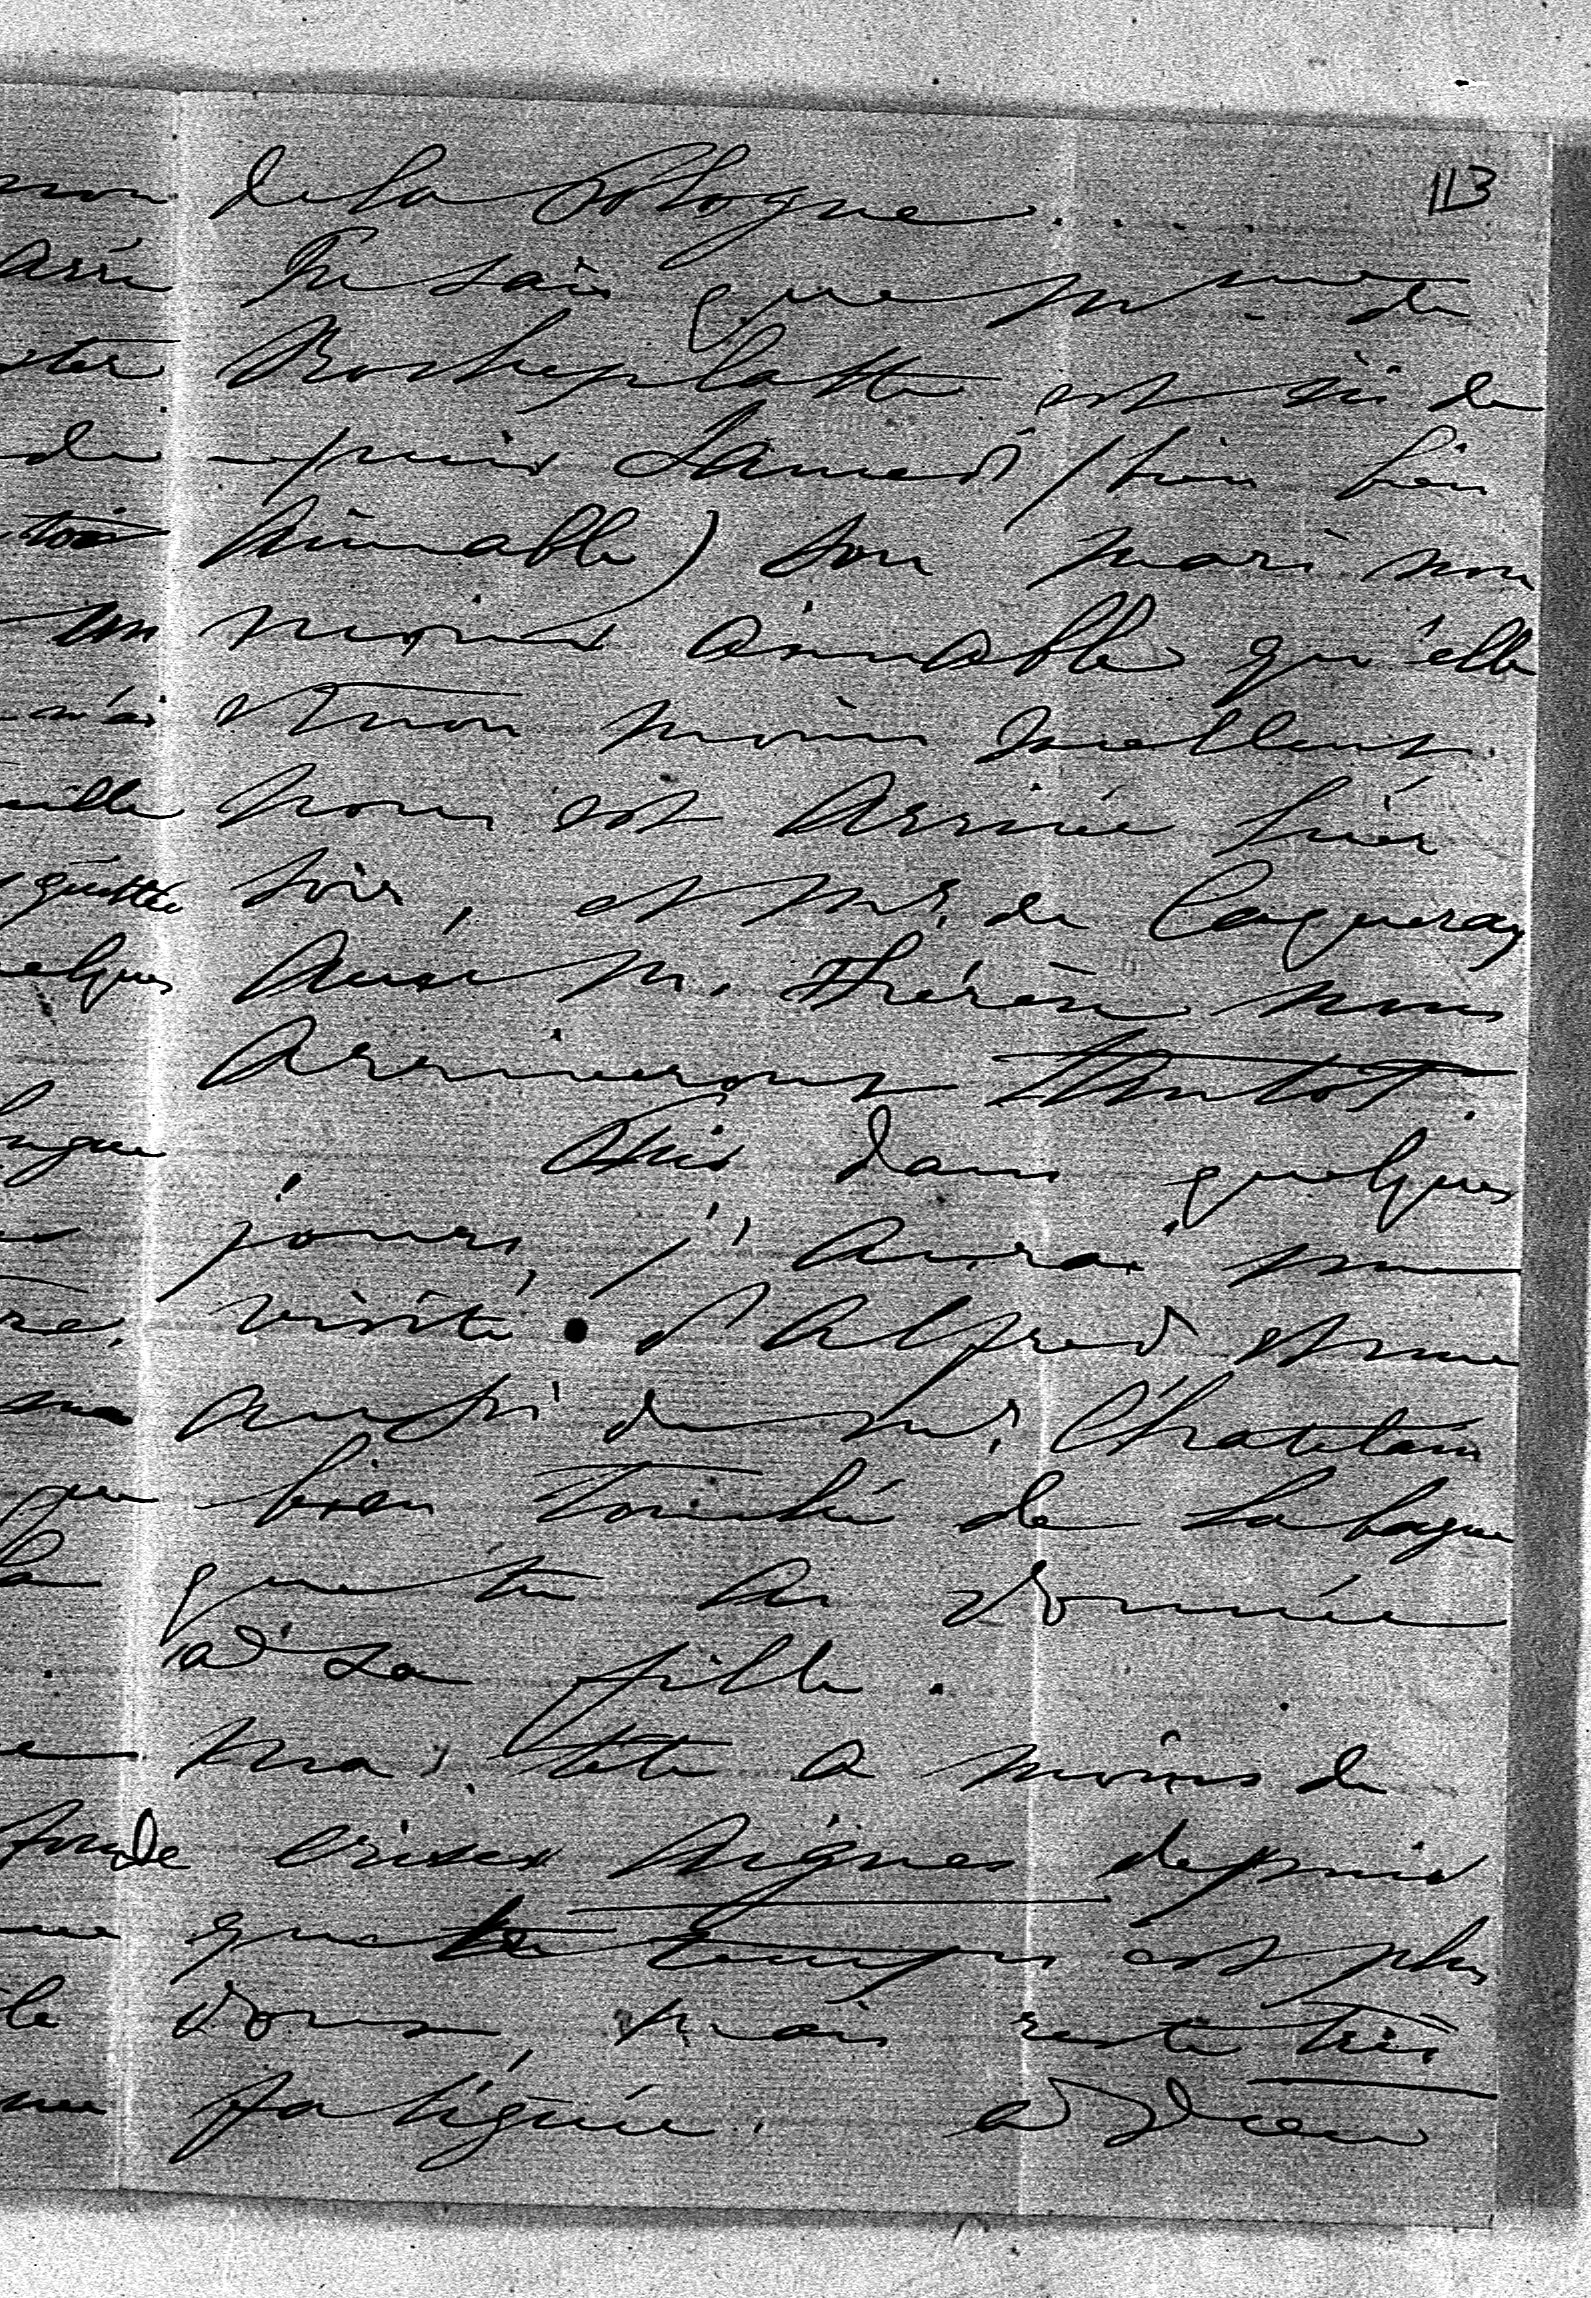 113
de la Pologne . . . .
Tu sais que Mme de
Rocheplatte est ici de
-puis Samedi (bien bien
aimable) son mari non
moins aimable qu'elle
et non moins excellent.
nous est arrivé hier
soir, et Mr. de Caqueray
Aussi M. Thérèse nous
arriverons tantôt.
Puis dans quelques
jours, j'aurai une
visite d'Alfred et une
aussi de Mr. Chatelain
bien touché de la bague
que tu as donnée
à sa fille.
ma tête a moins de
crises aigues depuis
que le temps est plus
doux mais reste très
fatiguée. adieu